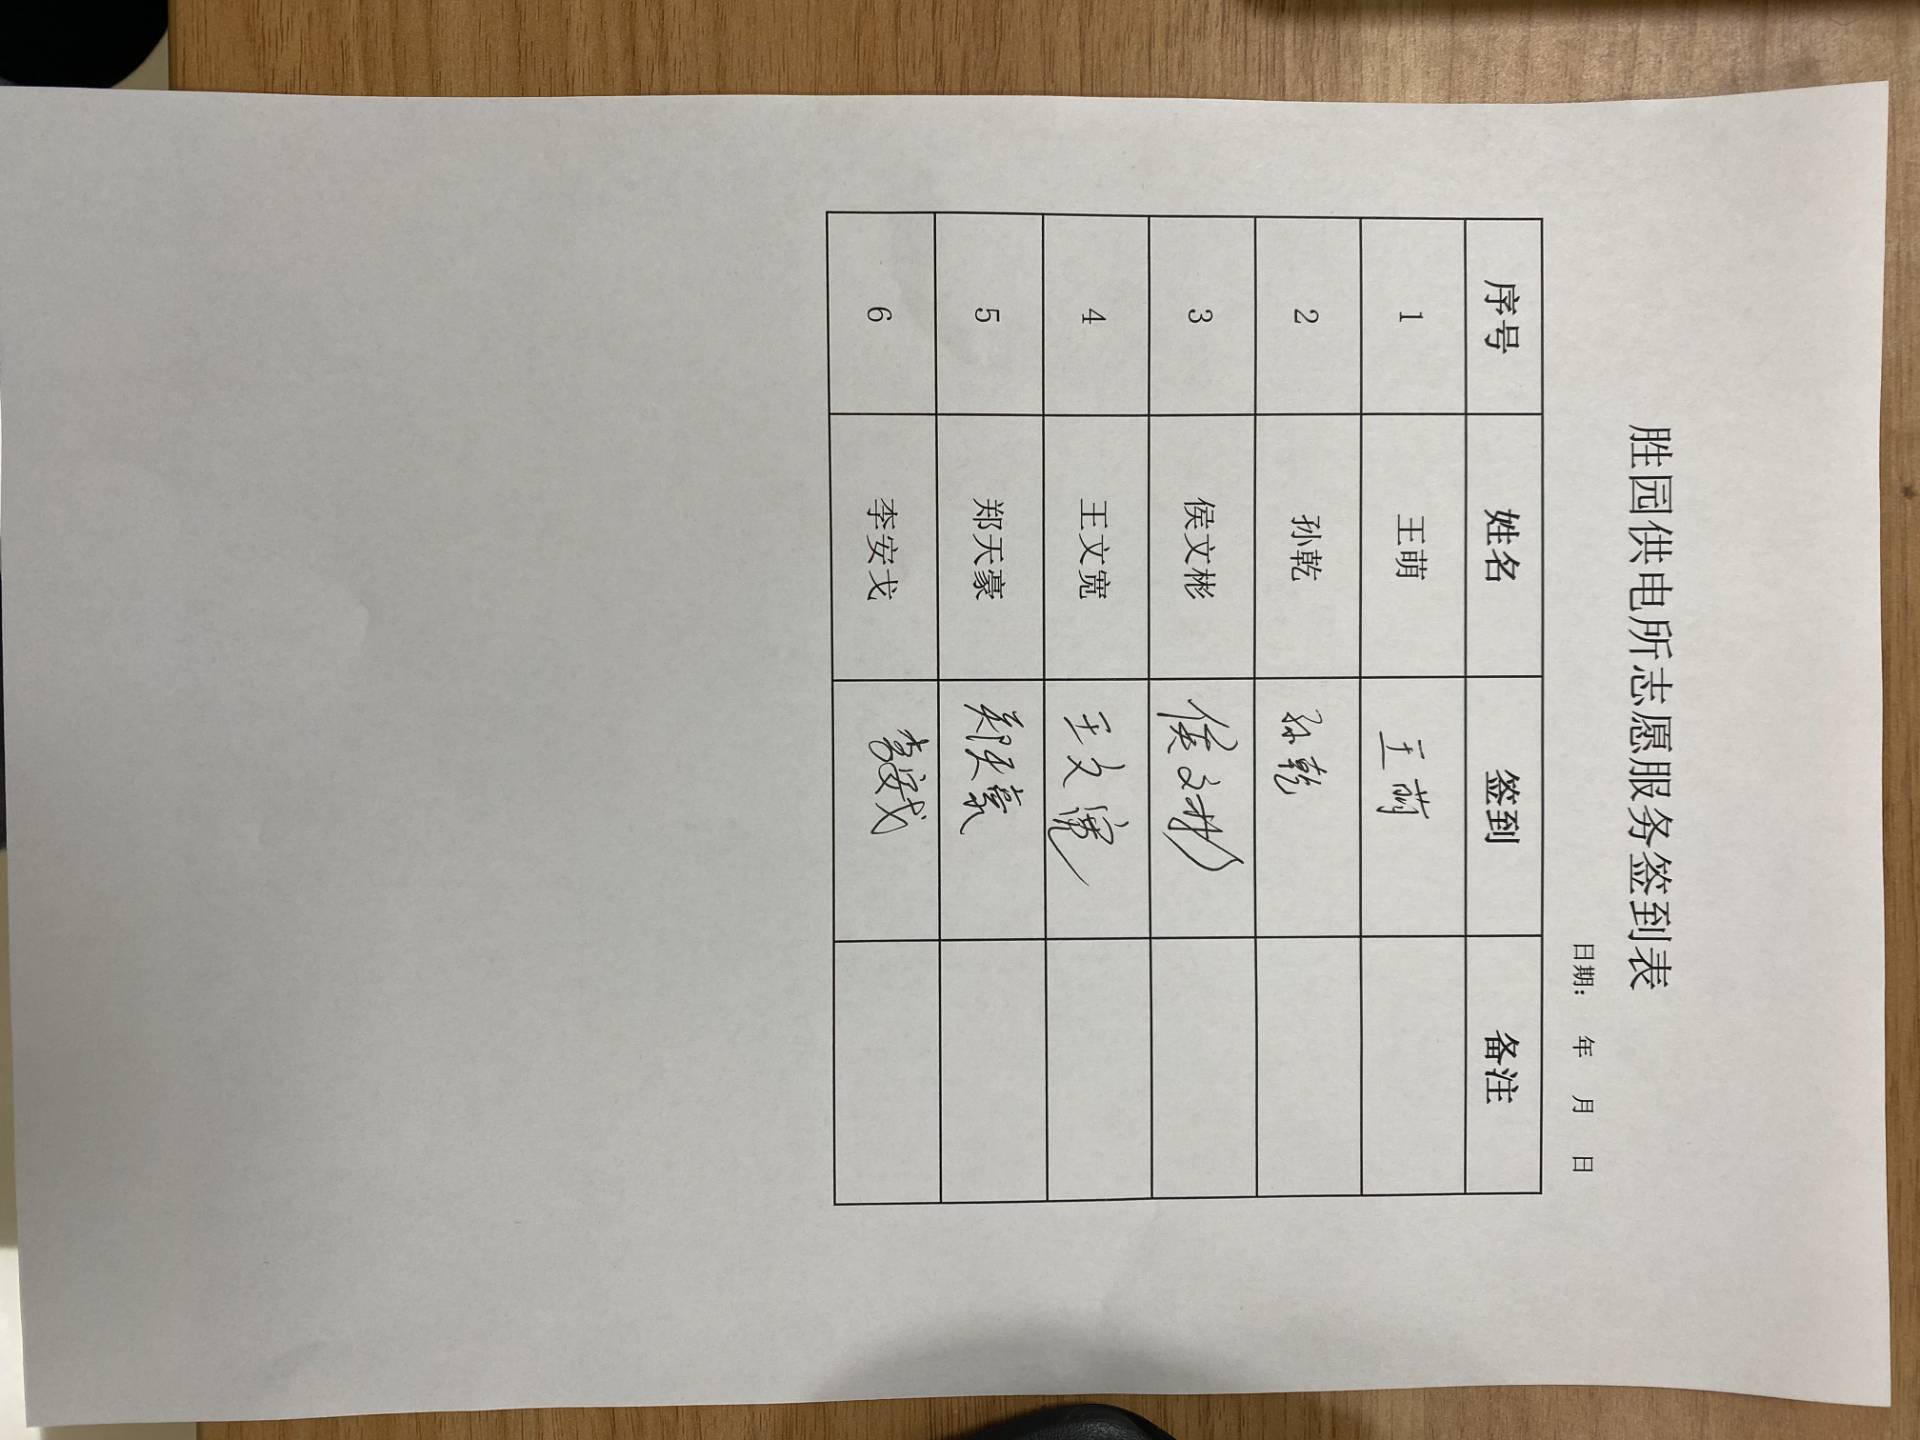 胜园供电所志愿服务签到表
日期: 年 月 日
序号 姓名 签到 备注
1 王萌 王萌
2 孙乾 孙乾
3 侯文彬 侯文彬
4 王文宽 王文宽
5 郑天豪 郑天豪
6 李安戈 李安戈